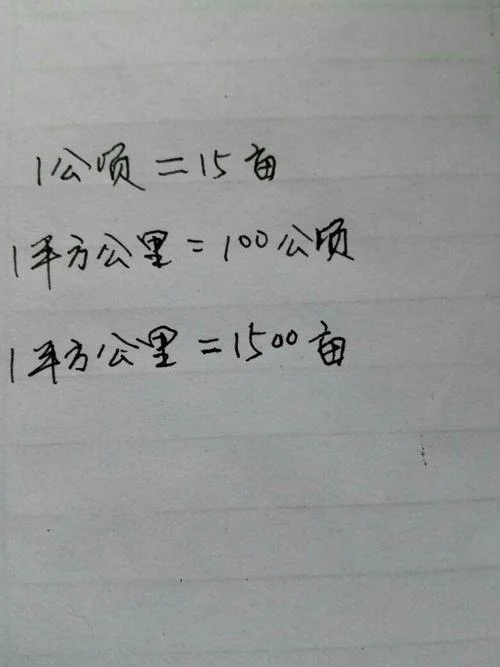 1公顷=15亩
1平方公里=100公顷
1平方公里=1500亩